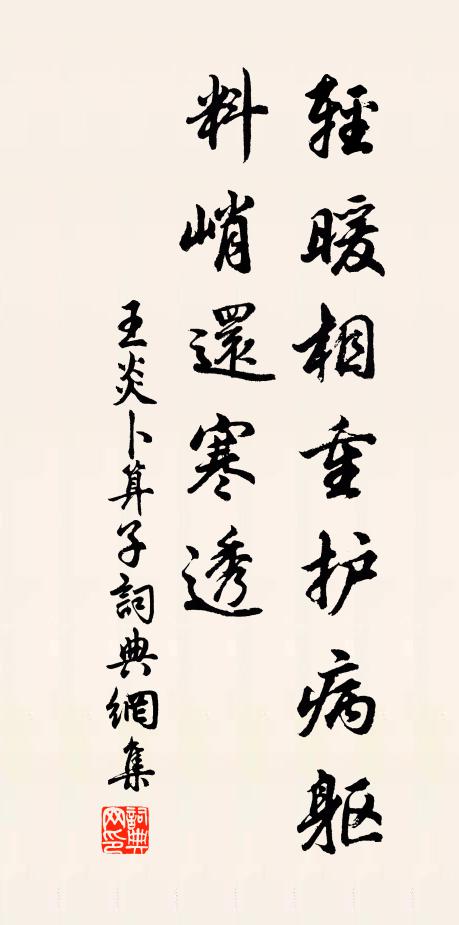 輕暖相重护病躯
料峭還寒透
王炎卜算子詞典網集
詞典網印